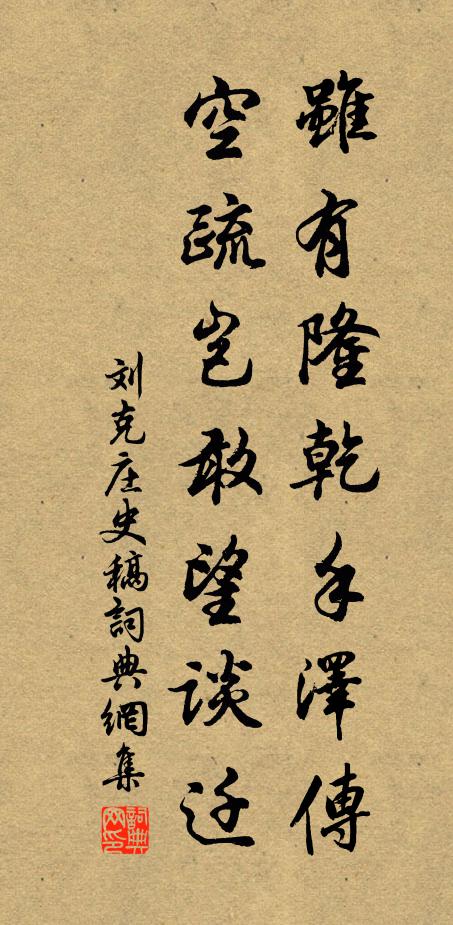 雖有隆乾手澤傳
空疏豈敢望談迁
刘克庄史稿詞典網集
詞典網印